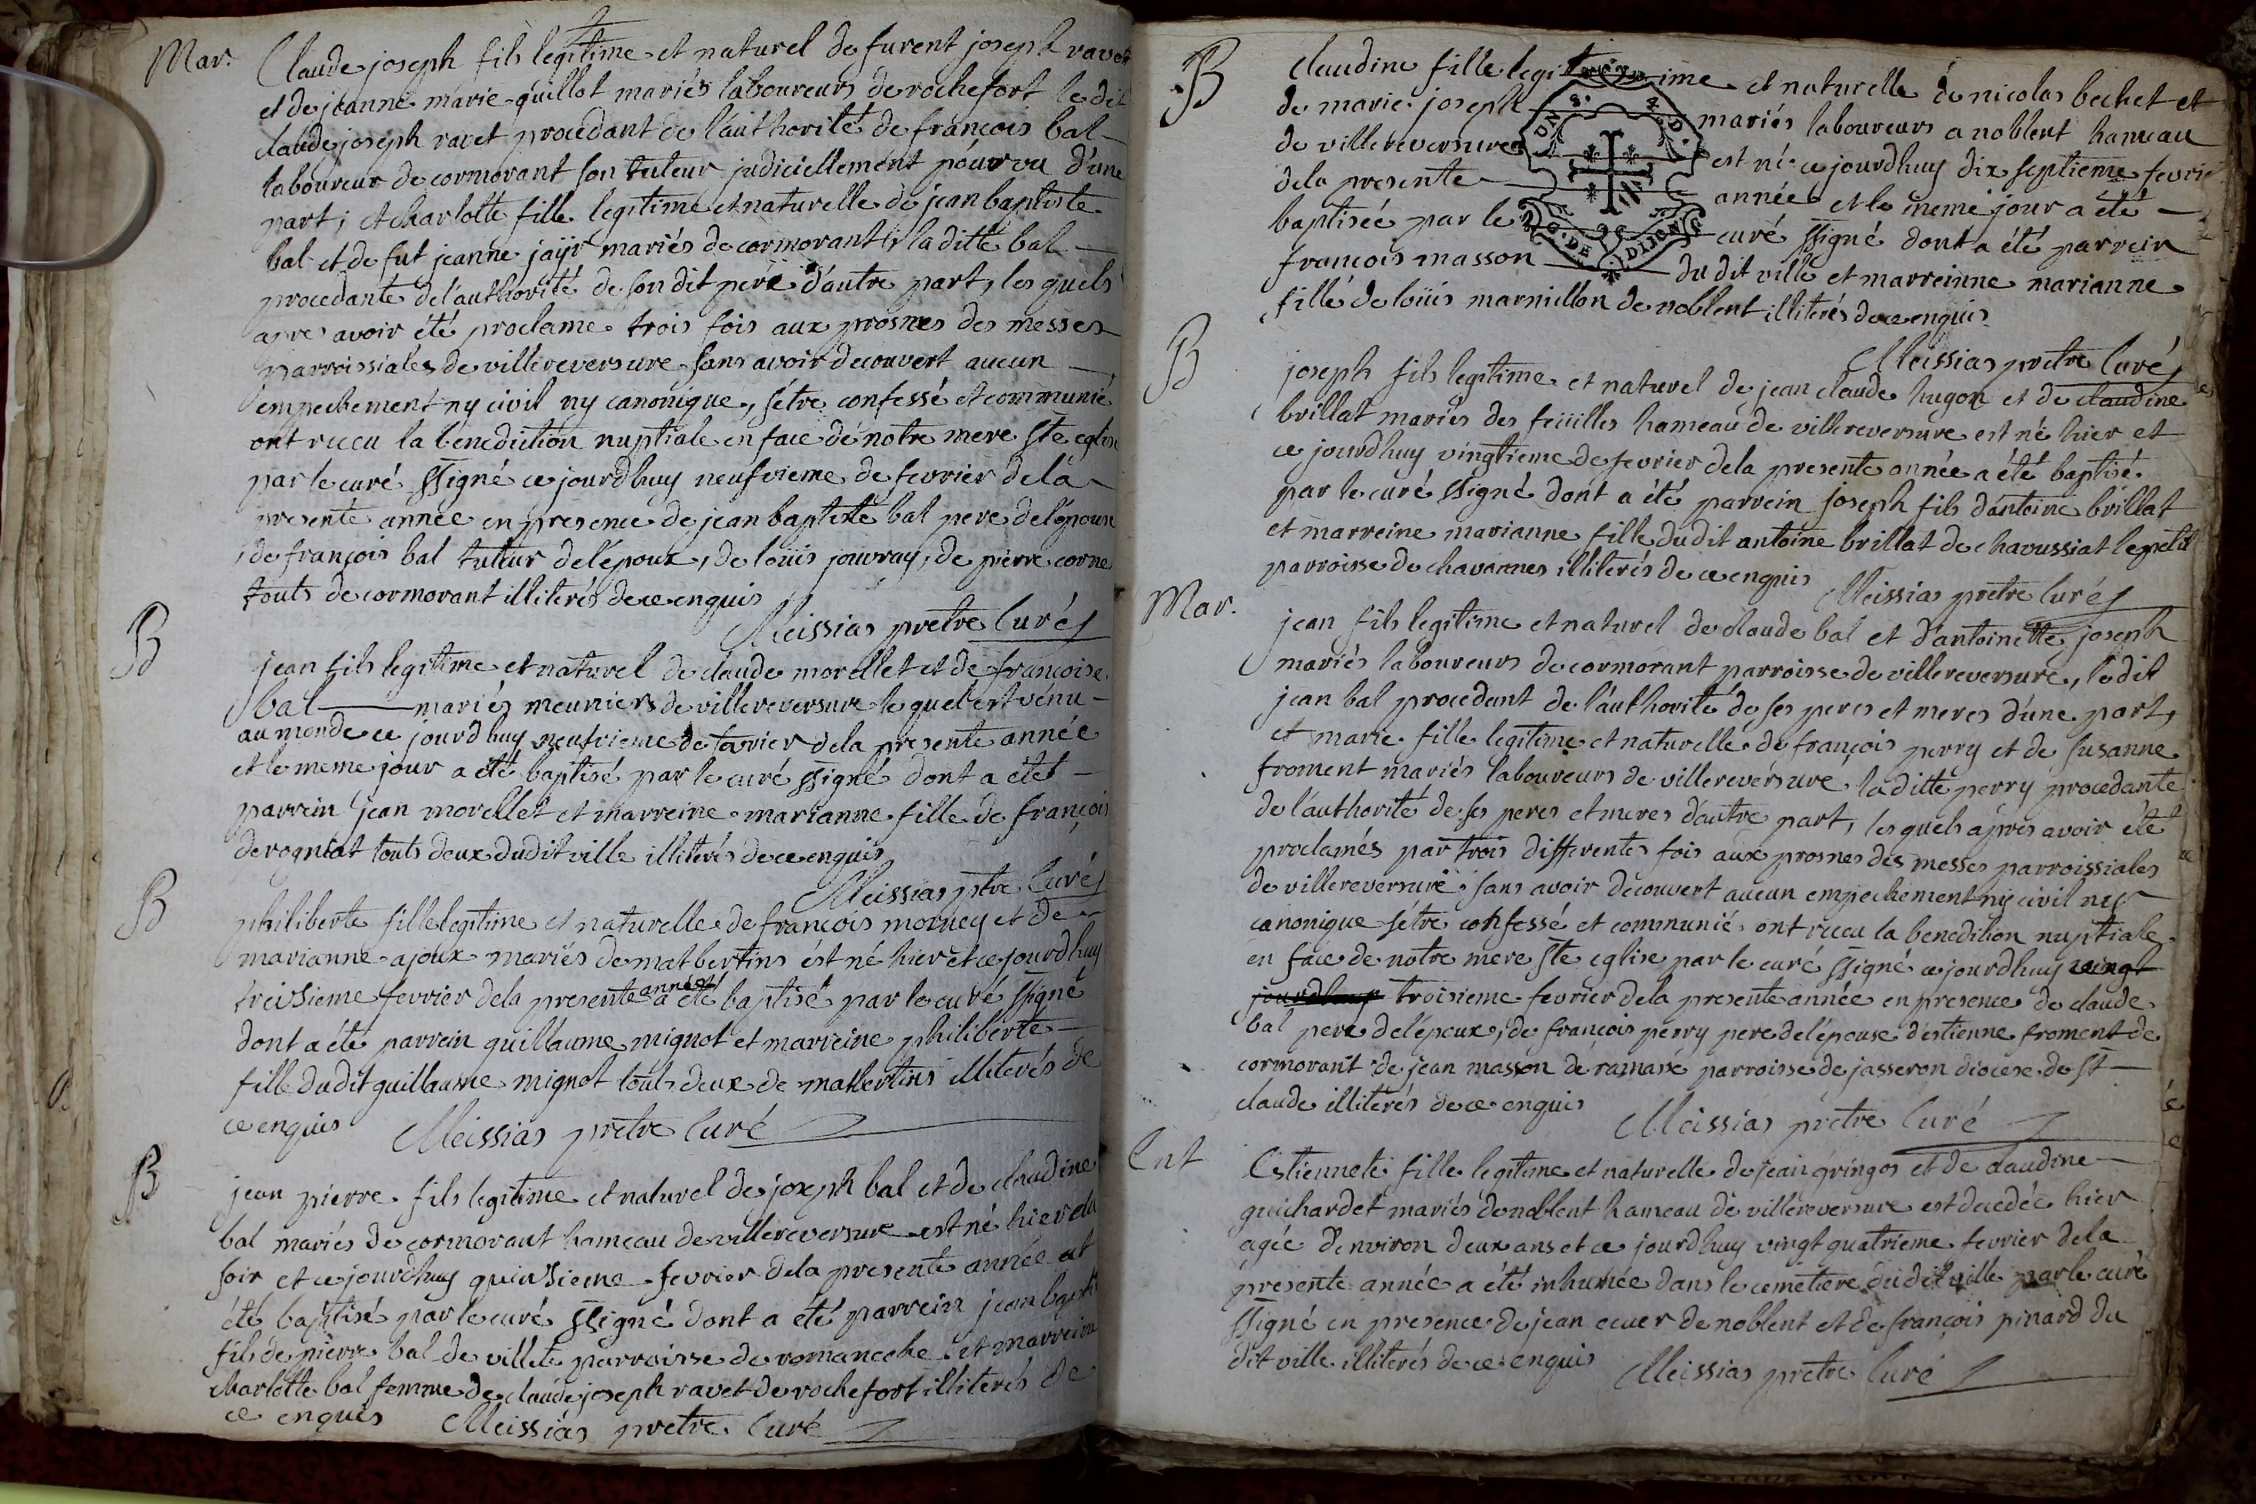 Mar. Claude joseph fils legitime et naturel de furent joseph ravet
et de jeanne marie guillot mariés laboureurs de rochefort le dit
claude joseph ravet procedant de l'authorité de françois bal
laboureur de cormorant son tuteur judiciellement pourvu d'une
part ; et charlotte fille legitime et naturelle de jean baptiste
bal et de fut jeanne jayr mariés de cormorant, la ditte bal
procedante de l'authorité de son dit pere d'autre part, les quels
apres avoir été proclame trois fois aux prosnes des messes
parroissiales de villereversure sans avoir decouvert aucun
empechement ny civil ny canonique, s'étre confessé et communié
ont reçeu la benediction nuptiale en face de notre mere ste eglise
par le curé ssigné ce jourdhuy neufvieme de fevrier de la
presente année en presence de jean baptiste bal pere de l'épouse
, de françois bal tuteur de l'époux, de loüis jouvray, de pierre corne
touts de cormorant illiterés de ce enquis
Meissias pretre Curé
B jean fils legitime et naturel de claude morellet et de françoise
bal mariés meuniers de villereversure le quel est venu
au monde ce jourdhuy neufvieme de fevrier de la presente année
et le meme jour a eté baptisé par le curé ssigné dont a étét
parrein jean morellet et marreine marianne fille de françois
derogniat touts deux dudit ville illiterés de ce enquis
Meissias ptre Curé
B philiberte fille legitime et naturelle de françois morney et de
marianne ajoux mariés de matbertins ést né hier et ce jourdhuy
treisieme fevrier de la presente année a été baptisé par le curé ssigné
dont a été parrein guillaume mignot et marreine philiberte
fille dudit guillaume mignot touts deux de matbertins illiterés de
ce enquis Meissias pretre Curé
B jean pierre fils legitime et naturel de joseph bal et de claudine
bal mariés de cormorant hameau de villereversure est né hier du
soir et ce jourdhuy quinsieme fevrier de la presente année at
été baptisé par le curé ssigné dont a été parrein jean baptiste
fils de pierre bal de villete parroisse de romaneche et marreine
charlotte bal femme de claude joseph ravet de rochefort illiterés de
ce enquis Meissias pretre Curé
B Claudine fille legitime et naturelle de nicolas bechet et
de marie joseph mariés laboureurs a noblent hameau
de villereversure est né ce jourdhuy dix septieme fevrier
de la presente année et le meme jour a été
baptisée par le curé ssigné dont a été parrein
françois masson du dit ville et marreinne marianne
fille de loüis marnillon de noblent illiterés de ce enquis
G. DE DIJON
Meissias pretre Curé
B joseph fils legitime et naturel de jean claude hugon et de claudine
brillat mariés des feüilles hameau de villereversure est né hier et
ce jourdhuy vingtieme de fevrier de la presente année a été baptisé
par le curé ssigné dont a été parrein joseph fils d'antoine brillat
et marreine marianne fille dudit antoine brillat de chavussiat le petit
parroisse de chavannes illiterés de ce enquis Meissias pretre Curé
Mar. jean fils legitime et naturel de claude bal et d'antoinette joseph
mariés laboureurs de cormorant parroisse de villereversure, le dit
jean bal procedent de l'authorité de ses peres et meres d'une part,
et marie fille legitime et naturelle de françois perry et de susanne
froment mariés laboureurs de villereversure, la ditte perry procedante
de l'authorité de ses peres et meres d'autre part, les quels apres avoir été
proclamés par trois differentes fois aux prosnes des messes parroissiales
de villereversure ; sans avoir decouvert aucun empechement ny civil ny
canonique s'étre confessé et communié ont reçeu la benedition nuptiale
en face de notre mere ste eglise par le curé ssigné ce jourdhuy vingt
jourdhuy troisieme fevrier de la presente année en presence de claude
bal pere de l'époux, de françois perry pere de l'épouse d'estienne froment de
cormorant de jean masson de ramasse parroisse de jasseron diocese de st
claude illiterés de ce enquis Meissias pretre Curé
Ent Estiennete fille legitime et naturelle de jean gringos et de claudine
guichardet mariés de noblent hameau de villereversure est decedée hier
agée d'environ deux ans et ce jourdhuy vingt quatrieme fevrier de la
presente année a été inhumée dans le cemetiere dudit ville par le curé
ssigné en presence de jean ecuer de noblent et de françois pinard du
dit ville illiterés de ce enquis Meissias pretre Curé